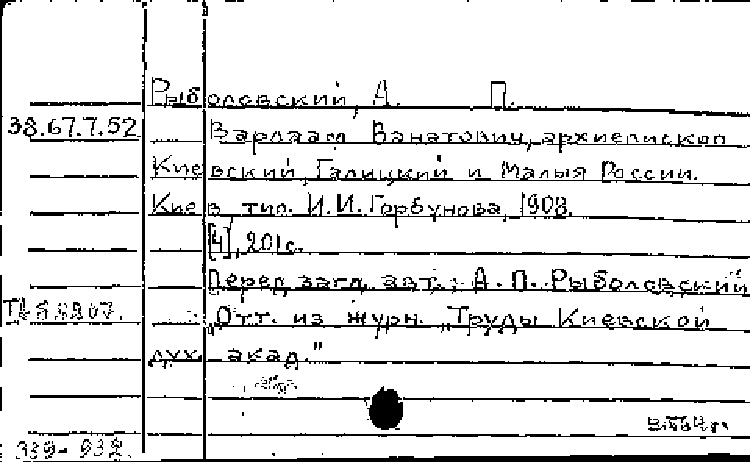 Рыболовский, А. П.
38.67.7.52 Варлаам Ванатович, архиепископ
Киевский, Галицкий и Малыя России.
Киев, тип. И.И. Горбунова, 1908.
[4], 201с.
Перед загл. авт.: А. П. Рыболовский
Отт. из журн. „Труды Киевской
дух. акад."